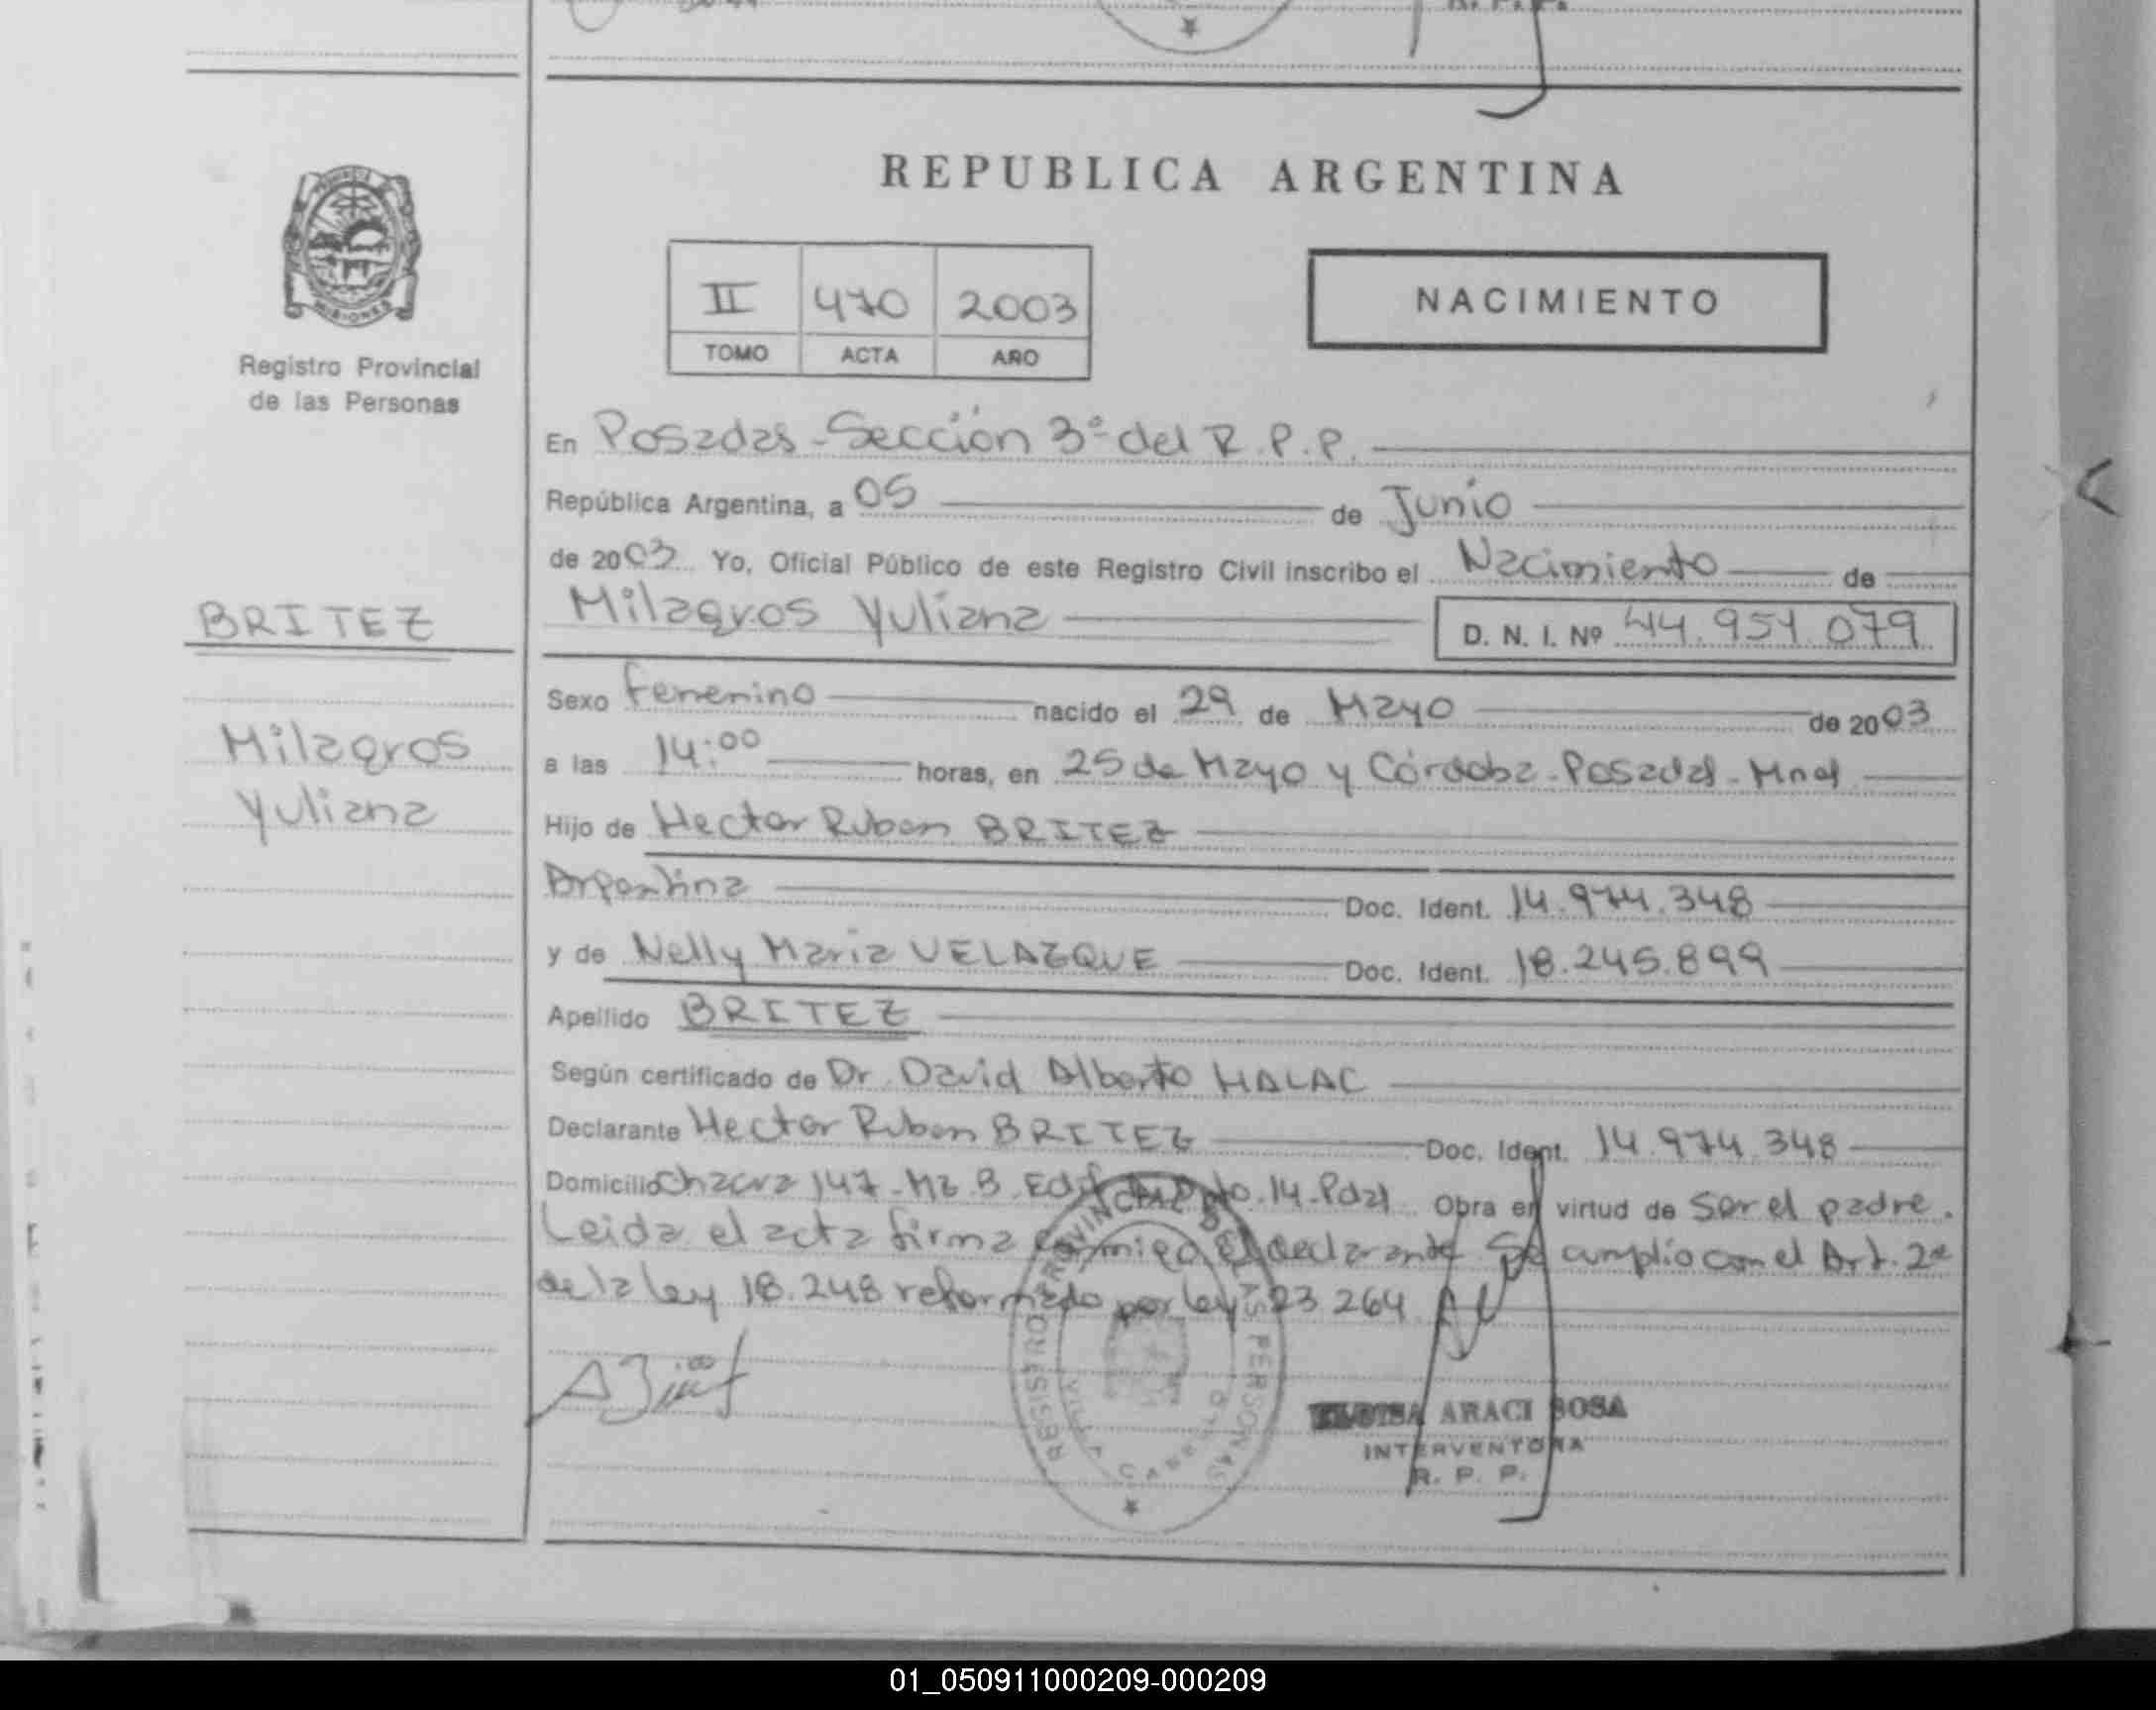 R. P. P.
REPUBLICA ARGENTINA
PROVINCIA DE
MISIONES
Registro Provincial
de las Personas
II 470 2003
TOMO ACTA AÑO
NACIMIENTO
En Posadas - Sección 3ª del R. P. P.
República Argentina, a 05 de Junio
de 2003 Yo, Oficial Público de este Registro Civil inscribo el Nacimiento de
Milagros Yuliana D. N. I. Nº 44.951.079
BRITEZ
Milagros
Yuliana
Sexo Femenino nacido el 29 de Mayo de 2003
a las 14:00 horas, en 25 de Mayo y Córdoba - Posadas - Mnes
Hijo de Hector Ruben BRITEZ
Argentina Doc. Ident. 14.974.348
y de Nelly Maria VELAZQUE Doc. Ident. 18.245.899
Apellido BRITEZ
Según certificado de Dr. David Alberto HALAC
Declarante Hector Ruben BRITEZ Doc. Ident. 14.974.348
Domicilio Chacra 147 - Mz. B. Edif. Dpto. 14 - Pdas Obra en virtud de ser el padre.
Leida el acta firma conmigo el declarante. Se cumplio con el Art. 2do
de la ley 18.248 reformado por ley 23 264
REGISTRO PROVINCIAL DE LAS PERSONAS
VILLA CABELLO
ARACI SOSA
INTERVENTORA
R. P. P.
01_050911000209-000209